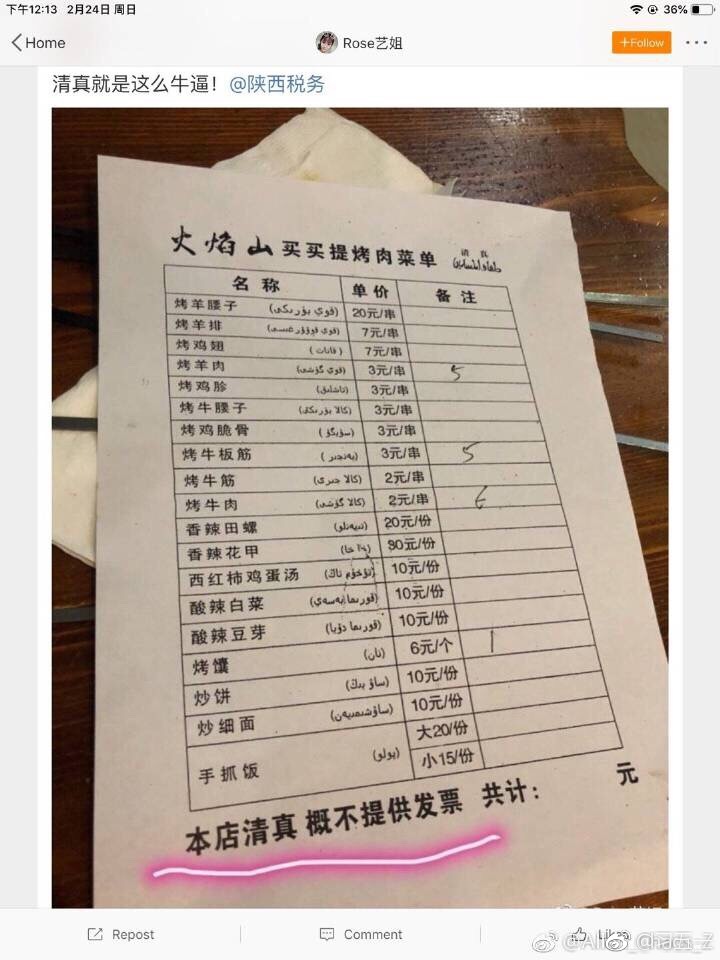 下午12:13 2月24日 周日 36%
Home Rose艺姐 +Follow
清真就是这么牛逼！@陕西税务
火焰山 买买提烤肉菜单 清真
名称 单价 备注
烤羊腰子 (قوي بۆرىكى) 20元/串
烤羊排 7元/串
烤鸡翅 (قانات) 7元/串
烤羊肉 (قوي گۆشى) 3元/串 5
烤鸡胗 (تاشلىق) 3元/串
烤牛腰子 (كالا بۆرىكى) 3元/串
烤鸡脆骨 3元/串
烤牛板筋 3元/串 5
烤牛筋 2元/串
烤牛肉 (كالا گۆشى) 2元/串 6
香辣田螺 20元/份
香辣花甲 30元/份
西红柿鸡蛋汤 10元/份
酸辣白菜 10元/份
酸辣豆芽 10元/份
烤馕 (نان) 6元/个 1
炒饼 10元/份
炒细面 10元/份
手抓饭 (پولو) 大20/份
小15/份
本店清真 概不提供发票 共计： 元
Repost Comment Likes